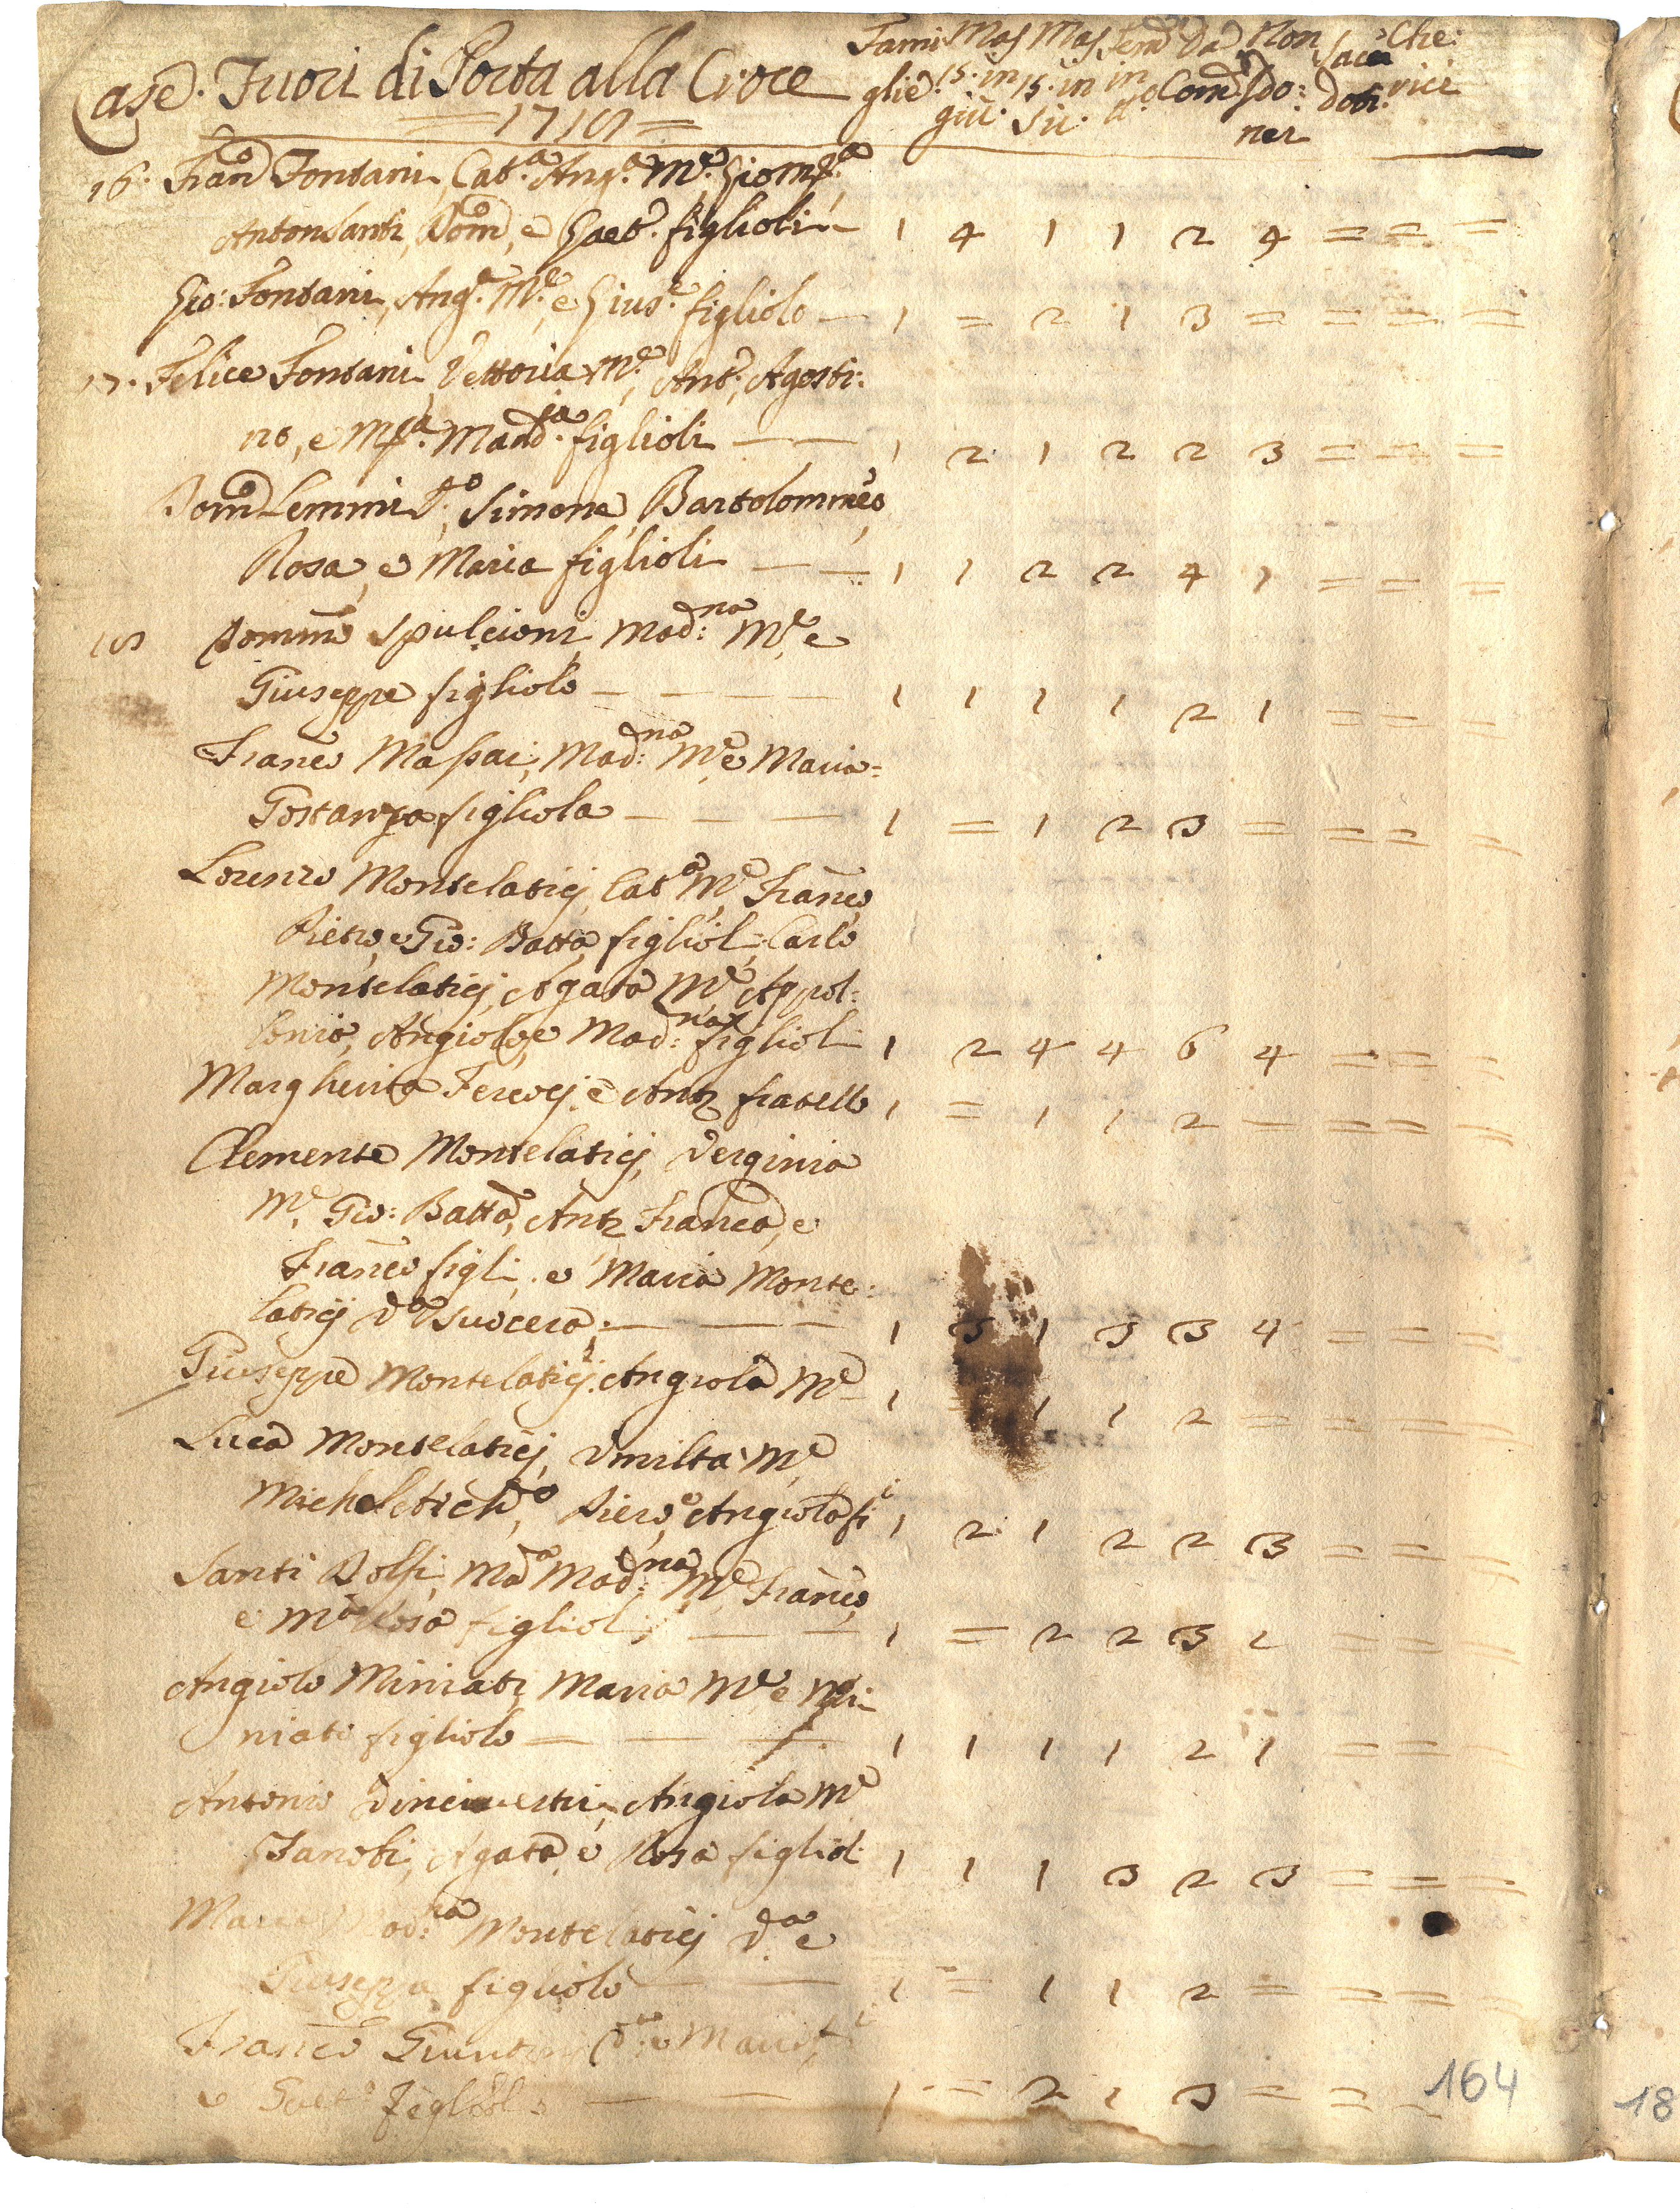 Case. Fuori di Porta alla Croce
Fami Mas Mas Fem Da Non Sacer Che:
glie. 15. in 15. in in Com do: doti. rici
giù. Sù. ner
= 1710 =
16. Franco Fontani, Cat.a Ang.a M.e
Anton Santi, Domco, e Gaet.o figlioli — 1 4 1 1 2 4 = = =
Gio: Fontani, Ang.a M.e, e Gius.e figliolo — 1 = 2 1 3 = = = =
17. Felice Fontani, Vettoria M.e, Ant.o, Agosti:
no, e Madna figlioli — — 1 2 1 2 2 3 = = =
Domco Lemmi V.o, Simone, Bartolommeo,
Rosa, e Maria figlioli — — 1 1 2 2 4 1 = = =
18 Domenco Spulcioni, Mad:na M.e, e
Giuseppe figliolo — — — — 1 1 1 1 2 1 = = =
Franco Massai, Mad:na M.e, e Maria=
Gostanza figliola — — — 1 = 1 2 3 = = = =
Lorenzo Montelaticj, Cat.a M.e, Franco,
Pietro, e Gio: Batta figlioli; Carlo
Montelaticj, Agata M.e, Appol:
lonio, Angiolo, e Mad:na figlioli 1 2 4 4 6 4 = = =
Margherita e Ant.o fratello 1 = 1 1 2 — = = =
Clemente Montelaticj, Verginia
M.e, Gio: Batta, Ant.o Franca, e
Franco figli, e Maria Monte:
laticj V.a Suocera; — — — 1 3 1 3 3 4 = = =
Giuseppe Montelaticj, Angiola M.e — 1 1 1 2 = = = =
Luca Montelaticj, Vmilta M.e
Piero, Angiola fi.i 1 2 1 2 2 3 = = =
Santi Dolfi, M.a Mad:na M.e, Franco,
e M.a Rosa figlioli; — — 1 = 2 2 3 1 = = =
Angiolo Miniati, Maria M.e, e Mi:
niato figliolo — — — 1 1 1 1 2 1 = = =
Antonio Angiola M.e
Zanobi, Agata, e Rosa figlioli 1 1 1 3 2 3 = = =
Maria Mad:na Montelaticj V.a, e
Giuseppe figliolo — — 1 = 1 1 2 = = = =
Franco Maria
e Gaet.o figlioli — — 1 = 2 1 3 = = =
164
18